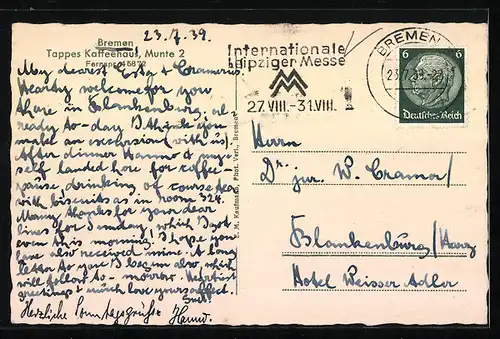 23.7.39.
Bremen
Tappes Kaffeehaus, Munte 2
Fernspr. 45872
My dearest Costa & Cramerius
Hearty welcome for you
there in Blankenburg, al-
ready to-day I think you
make an excursion (with us)
After dinner Hanno & my-
self landed here for coffee-
pause, drinking of course tea
with biscuits as in room 324.
Many thanks for your dear
lines for Sunday, which I got
even this morning, I hope you
have also received mine. A long
letter to you I began also, which
will follow to-morrow. Heartiest
greetings & much love yours affect.
Herzliche Sonntagsgrüsse Hanno.
L. M. Kaufmann, Phot. Verl., Bremen
Internationale
Leipziger Messe
27.VIII.-31.VIII.
BREMEN
23.7.39.-21
6 6
Deutsches Reich
Herrn
Dr. jur. W. Cramer/
Blankenburg/Harz
Hotel Weisser Adler